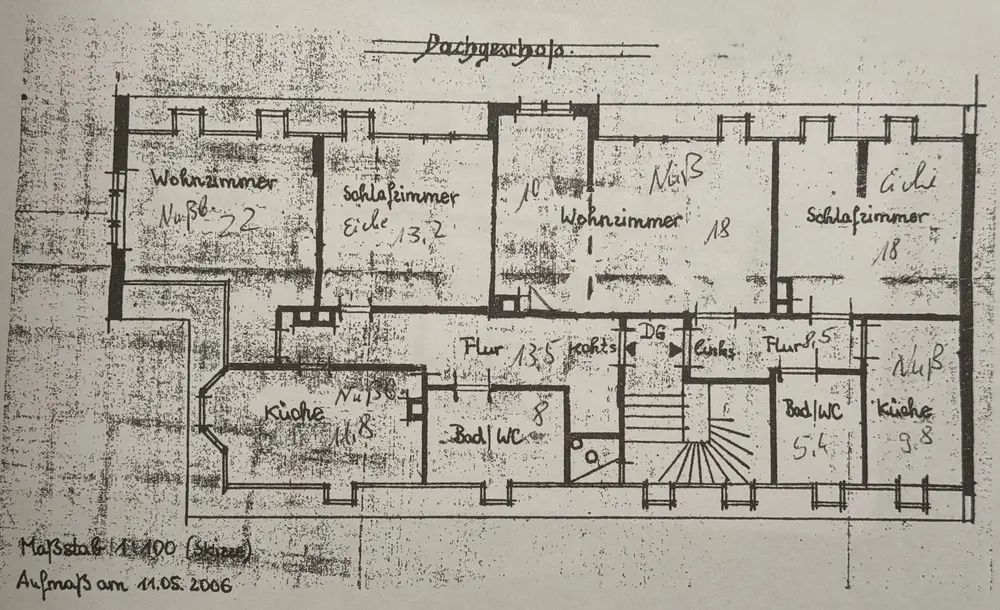 Dachgeschoß.
Wohnzimmer
Nußb. 22
Schlafzimmer
Eiche 13,2
10
Wohnzimmer
Nuß
18
Eiche
Schlafzimmer
18
Flur 13,5 rechts
DG
links Flur 8,5
Nuß
Küche
9,8
Bad/WC
5,4
Nußb.
Küche
11,8
8
Bad/WC
Maßstab 1:100 (Skizze)
Aufmaß am 11.05.2006